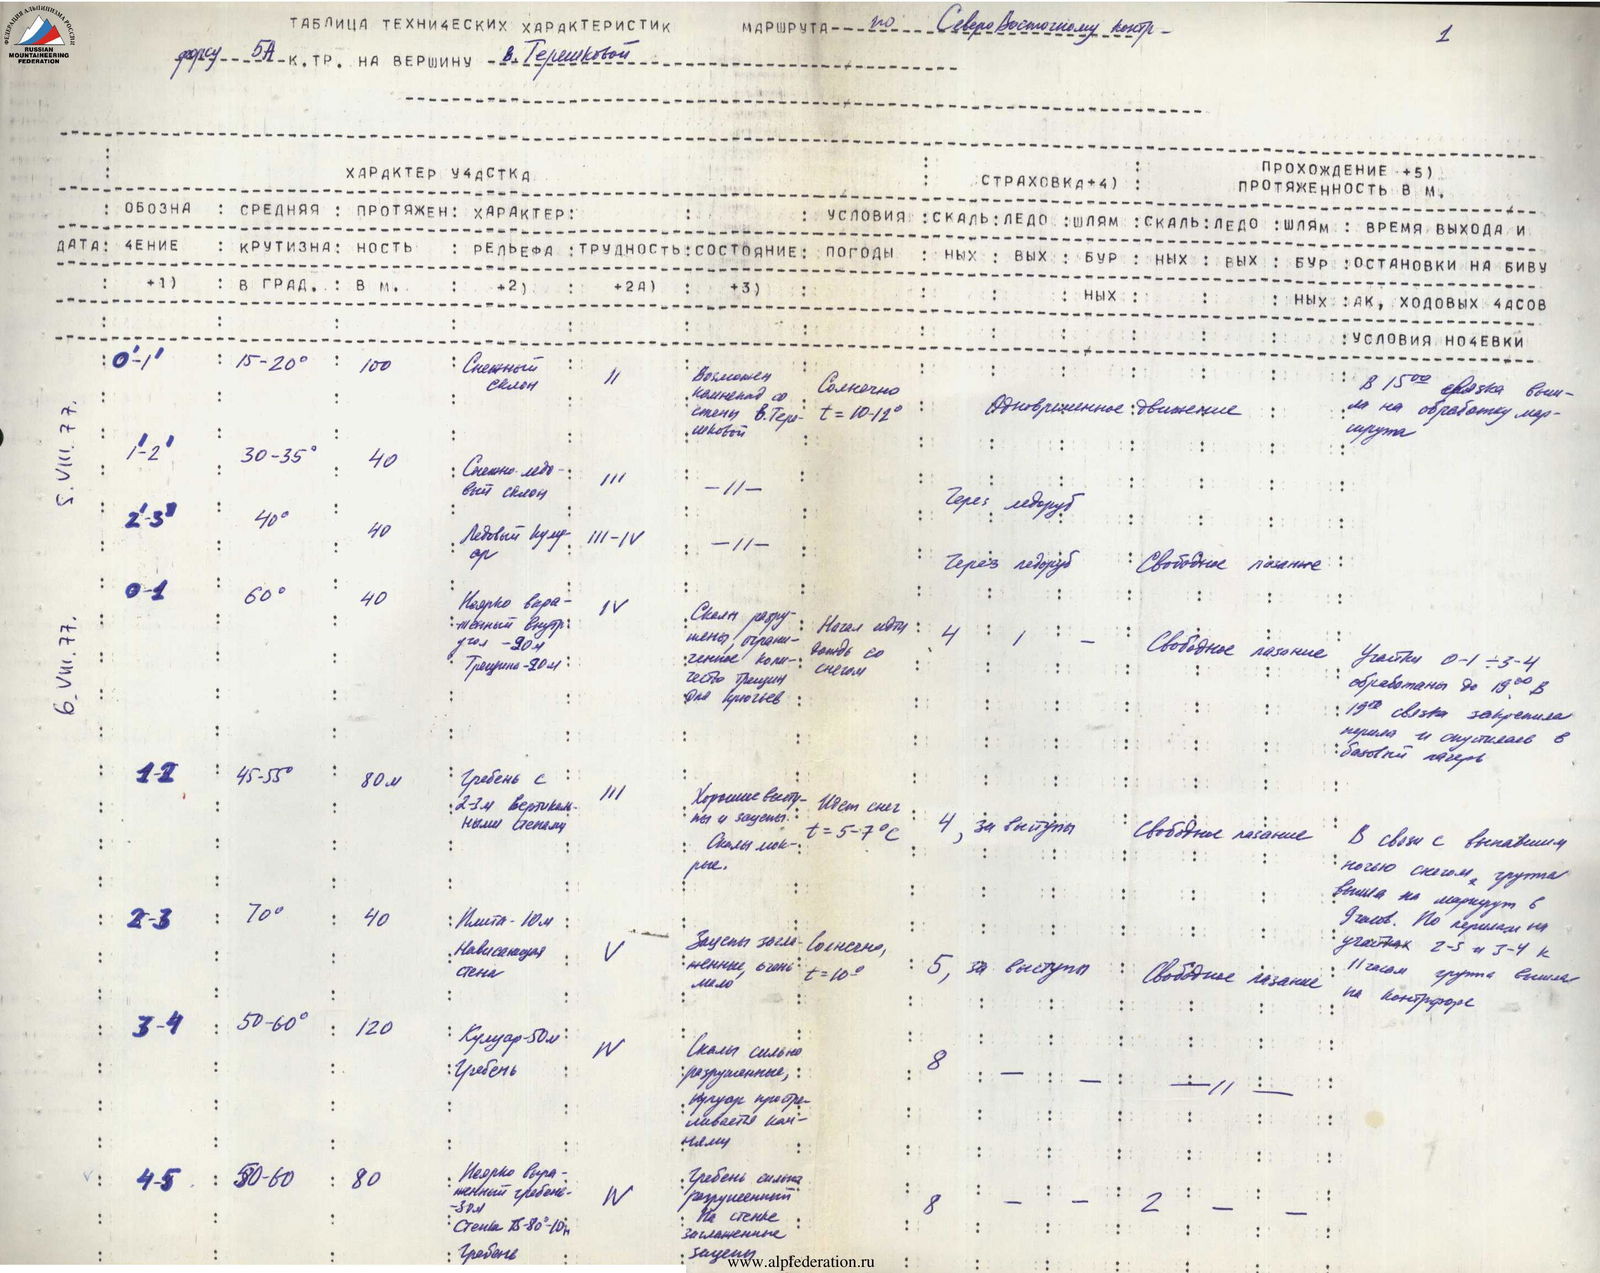 ФЕДЕРАЦИЯ АЛЬПИНИЗМА РОССИИ
RUSSIAN
MOUNTAINEERING
FEDERATION
ТАБЛИЦА ТЕХНИ4ЕСКИХ ХАРАКТЕРИСТИК МАРШРУТА по Северо Восточному контр-
форсу 5А К.ТР. НА ВЕРШИНУ в. Терешковой
1
ХАРАКТЕР У4АСТКА
СТРАХОВКА+4)
ПРОХОЖДЕНИЕ +5)
ПРОТЯЖЕННОСТЬ В М.
: ОБОЗНА : СРЕДНЯЯ : ПРОТЯЖЕН: ХАРАКТЕР: : : УСЛОВИЯ :СКАЛЬ:ЛЕДО :ШЛЯМ :СКАЛЬ:ЛЕДО :ШЛЯМ : ВРЕМЯ ВЫХОДА И
ДАТА: 4ЕНИЕ : КРУТИЗНА: НОСТЬ : РЕЛЬЕФА :ТРУДНОСТЬ:СОСТОЯНИЕ: ПОГОДЫ : НЫХ : ВЫХ : БУР : НЫХ : ВЫХ : БУР :ОСТАНОВКИ НА БИВУ
: +1) : В ГРАД. : В М. : +2) : +2А) : +3) : : : : НЫХ : : : НЫХ :АК, ХОДОВЫХ 4АСОВ
:УСЛОВИЯ НО4ЕВКИ
5.VIII.77.
0'-1'
15-20°
100
Снежный
склон
II
Возможен
камнепад со
стены В.Тере-
шковой
Солнечно
t = 10-12°
Одновременное движение
В 15⁰⁰ связка выш-
ла на обработку мар-
шрута
1'-2'
30-35°
40
Снежно-ледо-
вый склон
III
—II—
Через ледоруб
2'-3'
40°
40
Ледовый кулу-
ар
III-IV
—II—
Через ледоруб
Свободное лазание
6.VIII.77.
0-1
60°
40
Неярко выра-
женный внутр.
угол -20м
Трещина-20м
IV
Скалы разру-
шены, ограни-
ченное коли-
чество трещин
для крючьев
Начал идти
дождь со
снегом
4
1
—
Свободное лазание
Участки 0-1 ÷ 3-4
обработаны до 19⁰⁰. В
19⁰⁰ связка закрепила
перила и спустилась в
базовый лагерь
1-2
45-55°
80м
Гребень с
2-3м вертикаль-
ными стенами
III
Хорошие высту-
пы и зацепы.
Скалы мок-
рые.
Идет снег
t = 5-7°С
4, за выступы
Свободное лазание
В связи с выпавшим
ночью снегом, группа
вышла на маршрут в
9часов. По перилам на
участках 2-3 и 3-4 к
11 часам группа вышла
на контрфорс
2-3
70°
40
Плита-10м
Нависающая
стена
V
Зацепы загла-
женные, очень
мало
Солнечно,
t = 10°
5, за выступы
Свободное лазание
3-4
50-60°
120
Кулуар-50м
Гребень
IV
Скалы сильно
разрушенные,
кулуар простре-
ливается кам-
нями
8
—
—
—II—
4-5
50-60
80
Неярко выра-
женный гребень-
-30м
Стенка 75-80°-10м
Гребень
IV
Гребень сильно
разрушенный
На стенке
заглаженные
зацепы
8
—
—
2
—
—
www.alpfederation.ru